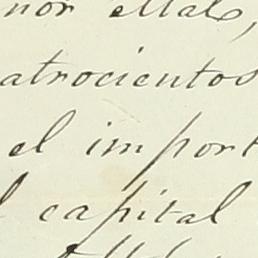 nor
atrocientos
el import
l capital